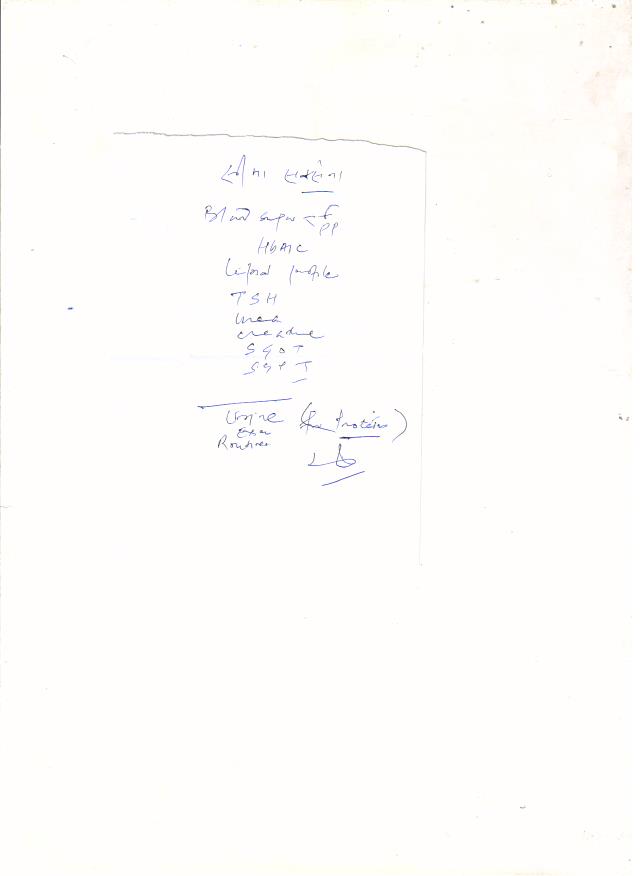 Blood sugar < F
PP
HbA1C
Lipid profile
TSH
Urea
creatine
SGOT
SGPT
Urine (for Proteins)
Exam
Routine